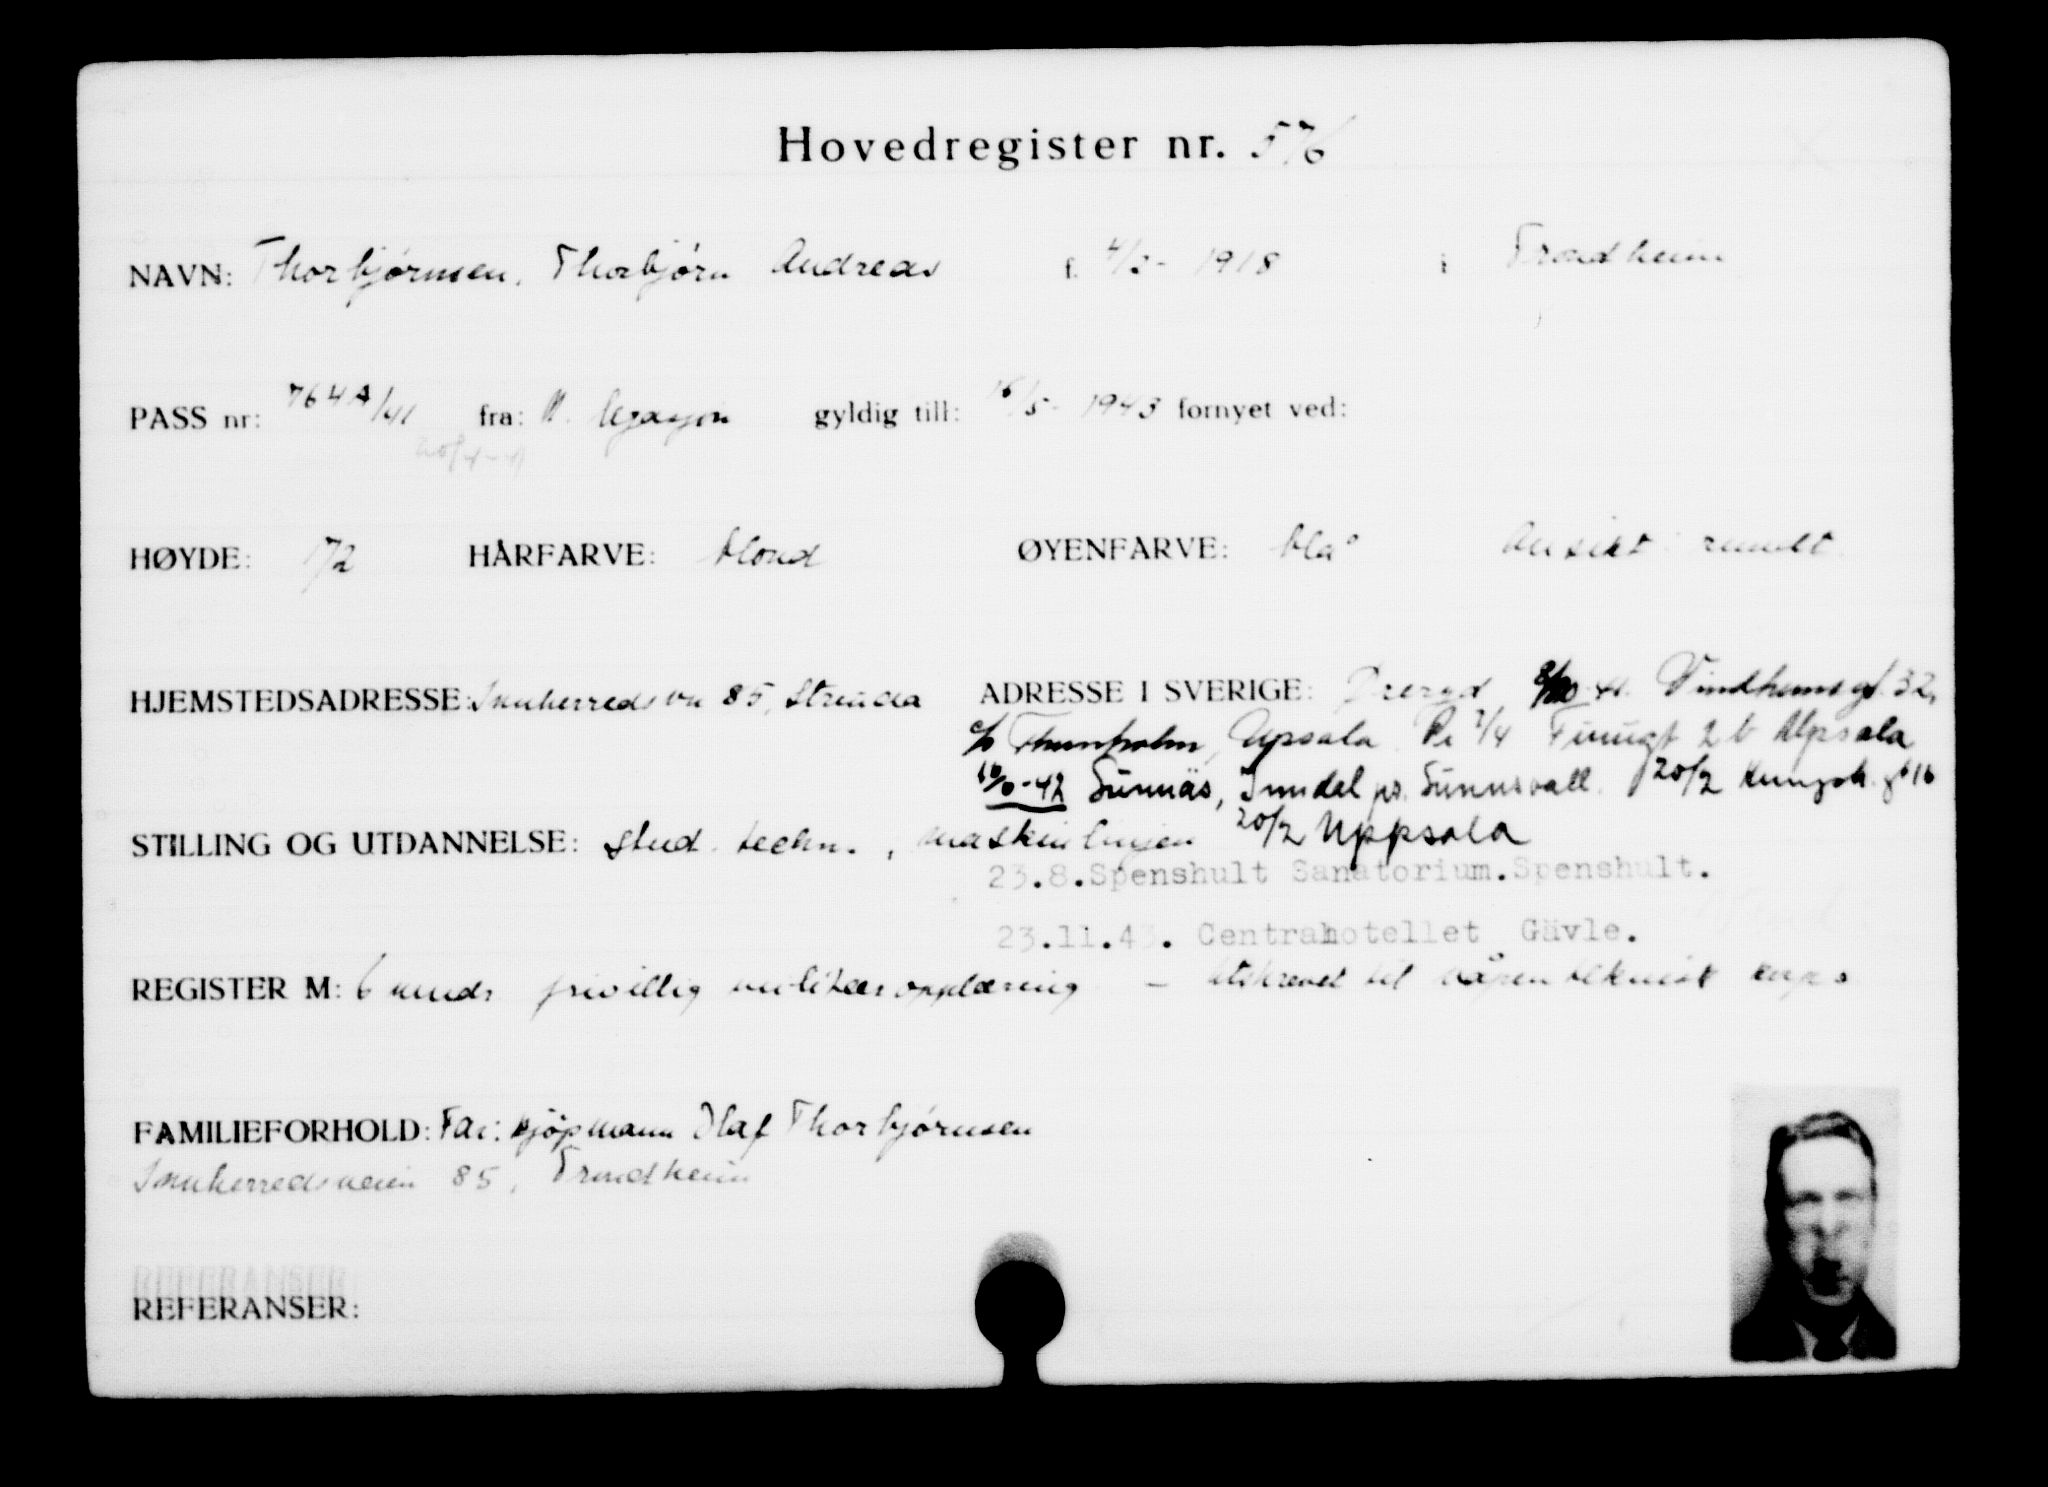 Hovedregister nr. 576
NAVN: Thorbjørnsen, Thorbjørn Andreas f. 4/3- 1918 i Trondheim
PASS nr: 764A/41 fra: N. legasjon gyldig till: 16/5- 1943 fornyet ved:
20/4-41
HØYDE: 172 HÅRFARVE: blond ØYENFARVE: blå Ansikt: rundt
HJEMSTEDSADRESSE: Innherredsvn 85, Strinda ADRESSE I SVERIGE: Öreryd 41. Vindhemsgt. 32,
c/o Upsala 2/4 2b Upsala
-42 Sunnäs, Inndal pr. Sunnsvall. 20/2 16
STILLING OG UTDANNELSE: stud. techn., maskinlinjen 20/2 Uppsala
23.8. Spenshult Sanatorium. Spenshult.
23.11.43. Centralhotellet Gävle.
REGISTER M: 6 mndr frivillig militæropplæring – utskrevet til våpenteknisk korps
FAMILIEFORHOLD: Far: kjöpmann Olaf Thorbjørnsen
Innherredsveien 85, Trondheim
REFERANSER: